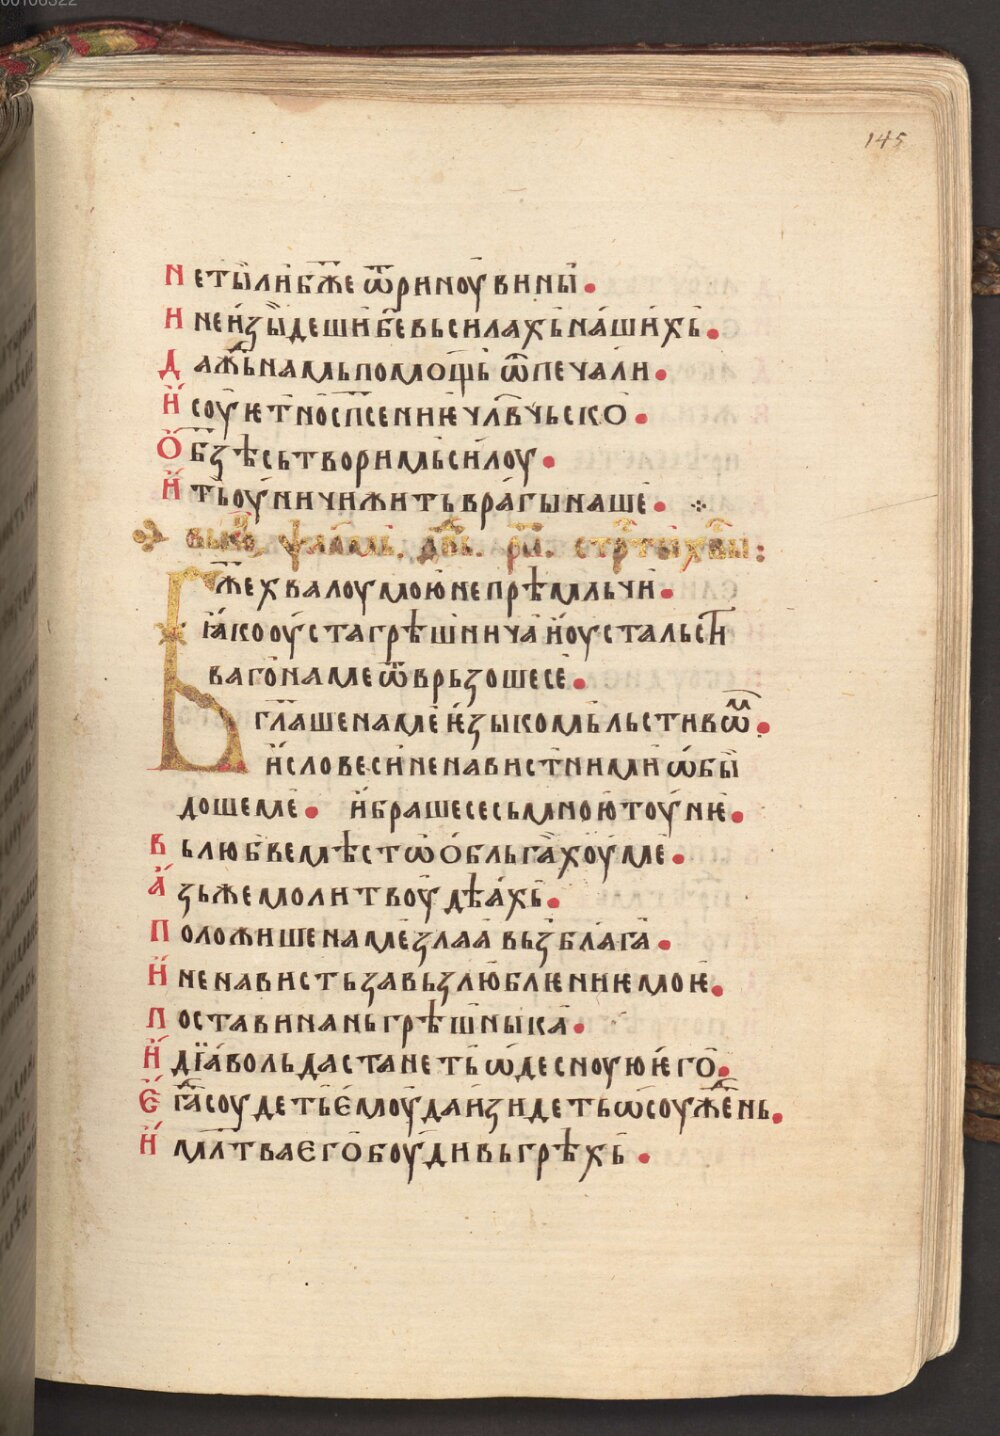 00106322
145
Не ты̀ ли бж҃е ѿринꙋ́ви ны̀ •
И не и҆зы́деши бж҃е вь силахь на́шихь •
Даж҃ь намь помощь ѿ печали •
И҆ соу́ѥтно сп҃сениѥ чл҃вчьско •
Ѡ҆ бз҃ѣ сьтворимь си́лоу •
И҆ ть оу҆ничижить враг҄ы наше •
Бж҃е хвалоу мою не прѣмльчи •
ꙗ҆ко оу҆ста грѣшнича и҆ оуста льсти
ваго на ме ѿврьзоше се •
Гл҃аше на ме ѥ҆зыкомь льстивѡм •
и҆ словеси ненавистними ѡ҆бы
доше ме • и҆ браше се сь мною тоу́нѥ •
Вь любве мѣстѡ ѡ҆бльгахоу ме •
А҆зь же молитвоу дѣа́хь •
Положише на ме злаа вьз блага •
И҆ ненависть за вьзлюблѥниѥ моѥ •
Постави на нь грѣшныка •
И҆ дїа́воль да станеть ѡ҆десноую ѥ҆го •
Є҆гда соудеть є҆моу да и҆зидеть ѡсоуждень •
И҆ мл҃тва єго боуди вь грѣхь •